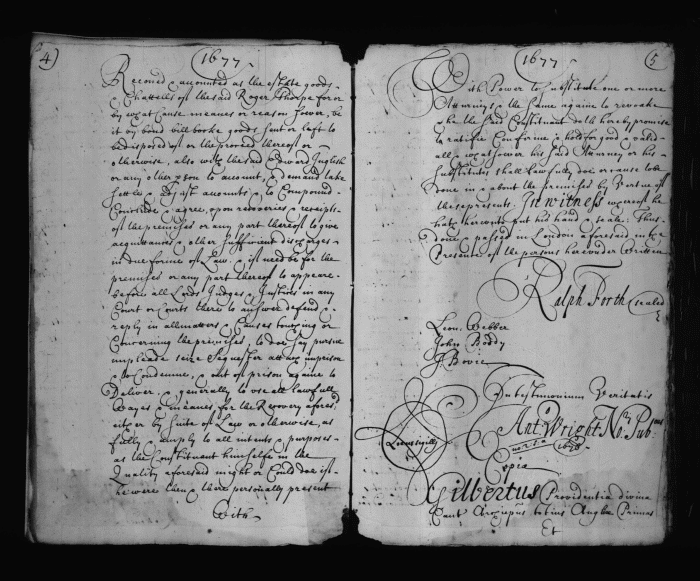 4)
1677
Reconed & accounted as the estate goods
Chattells of the said Roger Thorpe for or
by what Cause meanes or reason soever, be
it by bond will booke goods sent or left to
be disposed of or the proceed thereof or
otherwise, also with the said Edward English
or any other p[er]son to account, & demand take
settle & Adjust accounts, & to Compound
Conclude & agree, upon recoveries & receipts
of the premisses or any part thereof to give
acquittances & other sufficient discharges
in due forme of Law. & if need be for the
premisses or any part thereof to appeare
before all Lords Judges & Justices in any
Court or Courts there to answer defend &
reply in all matters & Causes touching or
Concerning the premisses, to doe say pursue
implead seize Sequester attach imprison
& to Condemne, & out of prison againe to
Deliver, & generally to use all lawfull
wayes & meanes for the Recovery afores[d]
either by Suite of Law or otherwise, as
fully & amply to all intents & purposes
as the Constituant himselfe in the
Quality aforesaid might or Could doe if
he were then & there personally present
With
1677
5
With Power to substitute one or more
Attorneys & the same againe to revoake
& he the said Constituant doth hereby promise
to ratifie Confirme & hold for good & valid
all & whatsoever his said Attorney or his
Substitutes shall lawfully doe or cause to be
done in & about the premisses by Vertue of
these presents. In witness whereof he
hath hereunto put his hand & seale. Thus
done & passed in London aforesaid in the
Presents of the persons hereunder Written
Ralph Forth sealed
Leon: Webber
John Boddy
J Bovie
In testimonium Veritatis
Locus sigilli
Ant: Wright No: Pub
1678
Copia
Gilbertus Providentia divina
Cant Archiepus totius Angliae Primas
Et